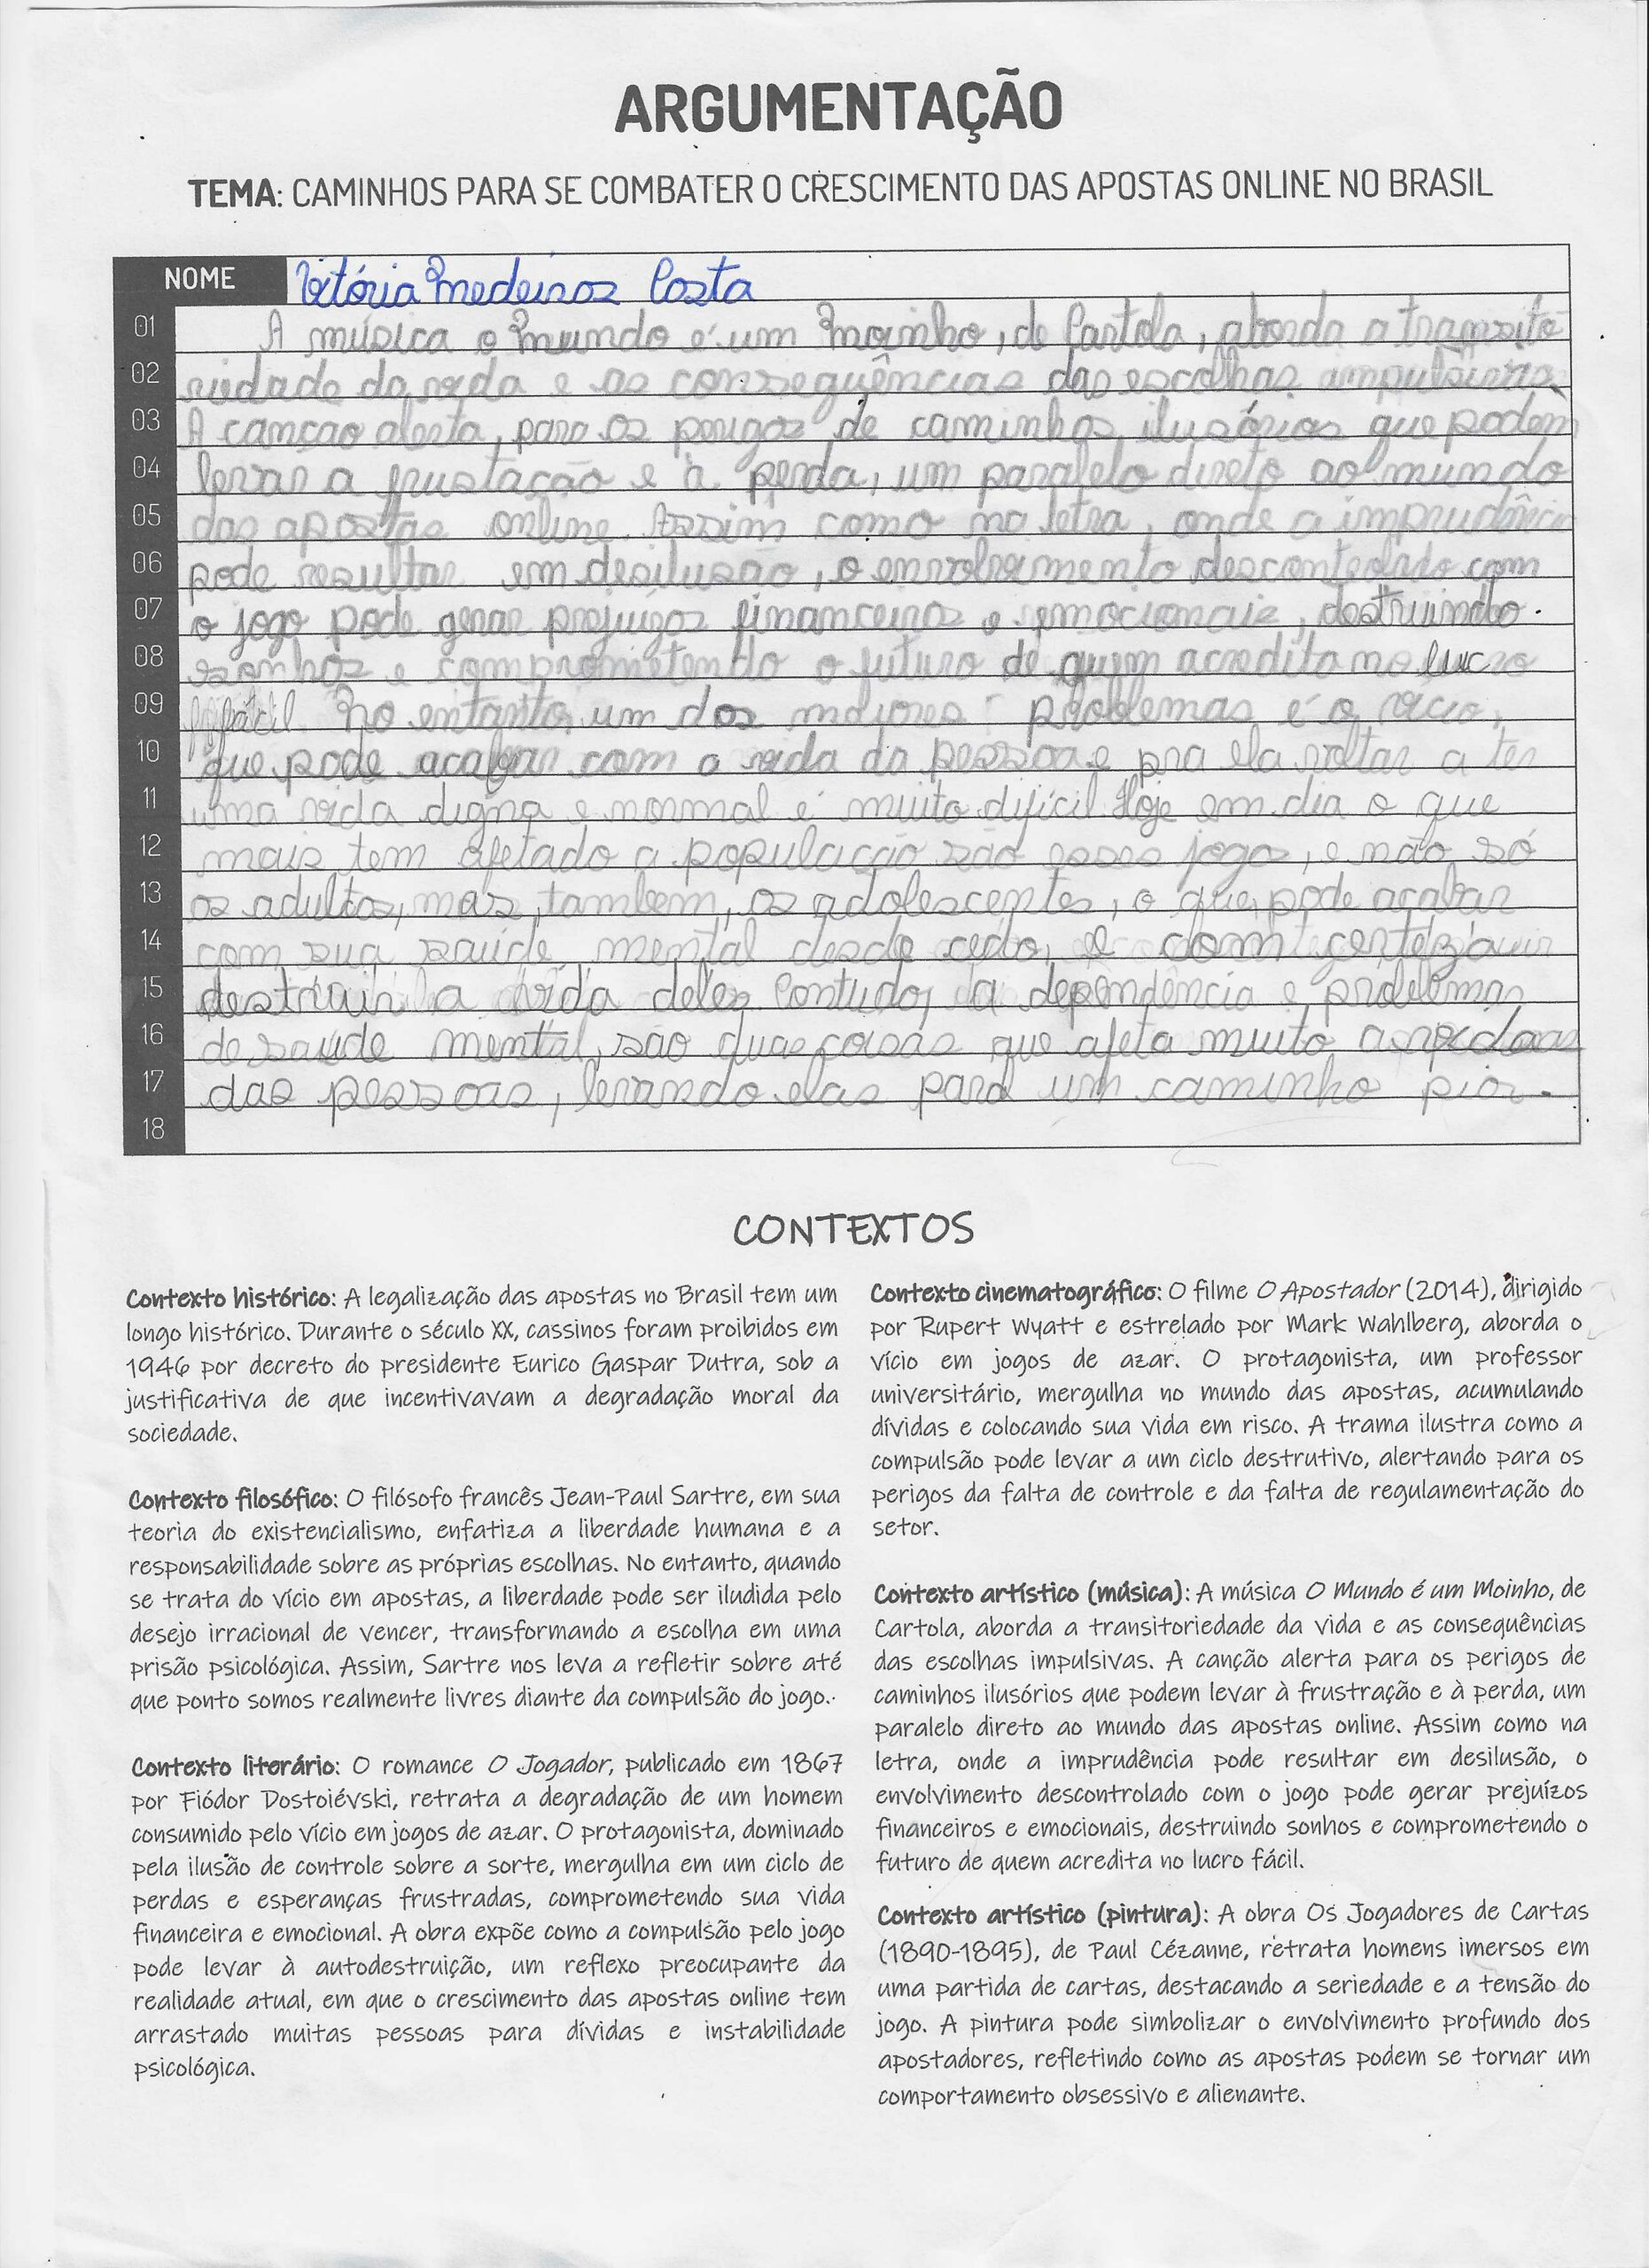 ARGUMENTAÇÃO
TEMA: CAMINHOS PARA SE COMBATER O CRESCIMENTO DAS APOSTAS ONLINE NO BRASIL
NOME Vitória Medeiros Costa
01 A música o mundo é um moinho, de Cartola, aborda a transito
02 riedade da vida e as consequências das escolhas impulsivas.
03 A canção alerta, para os perigos de caminhos ilusórios que podem
04 levar a frustação e à perda, um paralelo direto ao mundo
05 das apostas online. Assim como na letra, onde a imprudência
06 pode resultar em desilusão, o envolvimento descontrolado com
07 o jogo pode gerar prejuízos financeiros e emocionais, destruindo
08 sonhos e comprometendo o futuro de quem acredita no lucro
09 fácil. No entanto, um dos maiores problemas é o vício,
10 que pode acabar com a vida da pessoa e pra ela voltar a ter
11 uma vida digna e normal é muito difícil. Hoje em dia o que
12 mais tem afetado a população são esses jogos, e não só
13 os adultos, mas, tambem, os adolescentes, o que pode acabar
14 com sua saúde mental desde cedo, e com certeza
15 destruir a vida deles. Contudo, a dependência e problemas
16 de saúde mental, são duas coisas que afeta muito a vidas
17 das pessoas, levando elas para um caminho pior.
18
CONTEXTOS
Contexto histórico: A legalização das apostas no Brasil tem um
longo histórico. Durante o século XX, cassinos foram proibidos em
1946 por decreto do presidente Eurico Gaspar Dutra, sob a
justificativa de que incentivavam a degradação moral da
sociedade.
Contexto filosófico: O filósofo francês Jean-Paul Sartre, em sua
teoria do existencialismo, enfatiza a liberdade humana e a
responsabilidade sobre as próprias escolhas. No entanto, quando
se trata do vício em apostas, a liberdade pode ser iludida pelo
desejo irracional de vencer, transformando a escolha em uma
prisão psicológica. Assim, Sartre nos leva a refletir sobre até
que ponto somos realmente livres diante da compulsão do jogo.
Contexto literário: O romance O Jogador, publicado em 1867
por Fiódor Dostoiévski, retrata a degradação de um homem
consumido pelo vício em jogos de azar. O protagonista, dominado
pela ilusão de controle sobre a sorte, mergulha em um ciclo de
perdas e esperanças frustradas, comprometendo sua vida
financeira e emocional. A obra expõe como a compulsão pelo jogo
pode levar à autodestruição, um reflexo preocupante da
realidade atual, em que o crescimento das apostas online tem
arrastado muitas pessoas para dívidas e instabilidade
psicológica.
Contexto cinematográfico: O filme O Apostador (2014), dirigido
por Rupert Wyatt e estrelado por Mark Wahlberg, aborda o
vício em jogos de azar. O protagonista, um professor
universitário, mergulha no mundo das apostas, acumulando
dívidas e colocando sua vida em risco. A trama ilustra como a
compulsão pode levar a um ciclo destrutivo, alertando para os
perigos da falta de controle e da falta de regulamentação do
setor.
Contexto artístico (música): A música O Mundo é um Moinho, de
Cartola, aborda a transitoriedade da vida e as consequências
das escolhas impulsivas. A canção alerta para os perigos de
caminhos ilusórios que podem levar à frustração e à perda, um
paralelo direto ao mundo das apostas online. Assim como na
letra, onde a imprudência pode resultar em desilusão, o
envolvimento descontrolado com o jogo pode gerar prejuízos
financeiros e emocionais, destruindo sonhos e comprometendo o
futuro de quem acredita no lucro fácil.
Contexto artístico (pintura): A obra Os Jogadores de Cartas
(1890-1895), de Paul Cézanne, retrata homens imersos em
uma partida de cartas, destacando a seriedade e a tensão do
jogo. A pintura pode simbolizar o envolvimento profundo dos
apostadores, refletindo como as apostas podem se tornar um
comportamento obsessivo e alienante.